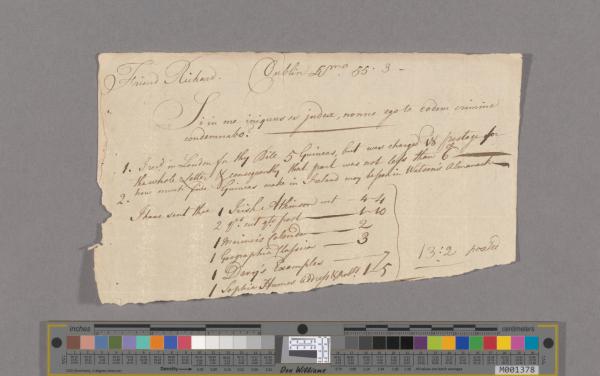 Friend Richard. Dublin 5mo 55. 3 -
Si in me iniquus es judex, nonne ego te eodem crimine
condemnabo?
1. I recd in London for thy Bite 5 Guineas, but was charged postage for
the whole Letter, & consequently that part was not less than 6
2. how much five Guineas make in Ireland may be seen in Watson's Almanack
I have sent thee 1 Irish Atkinson cut 4-4
2 qto cut qto post 1-10
1 Calendar 2
1 Geographia Classica 3
1 Davy's Examples 7
1 Sophia Humes Address & 1-5
13:2
inches
centimeters
Density
Don Williams
M001378